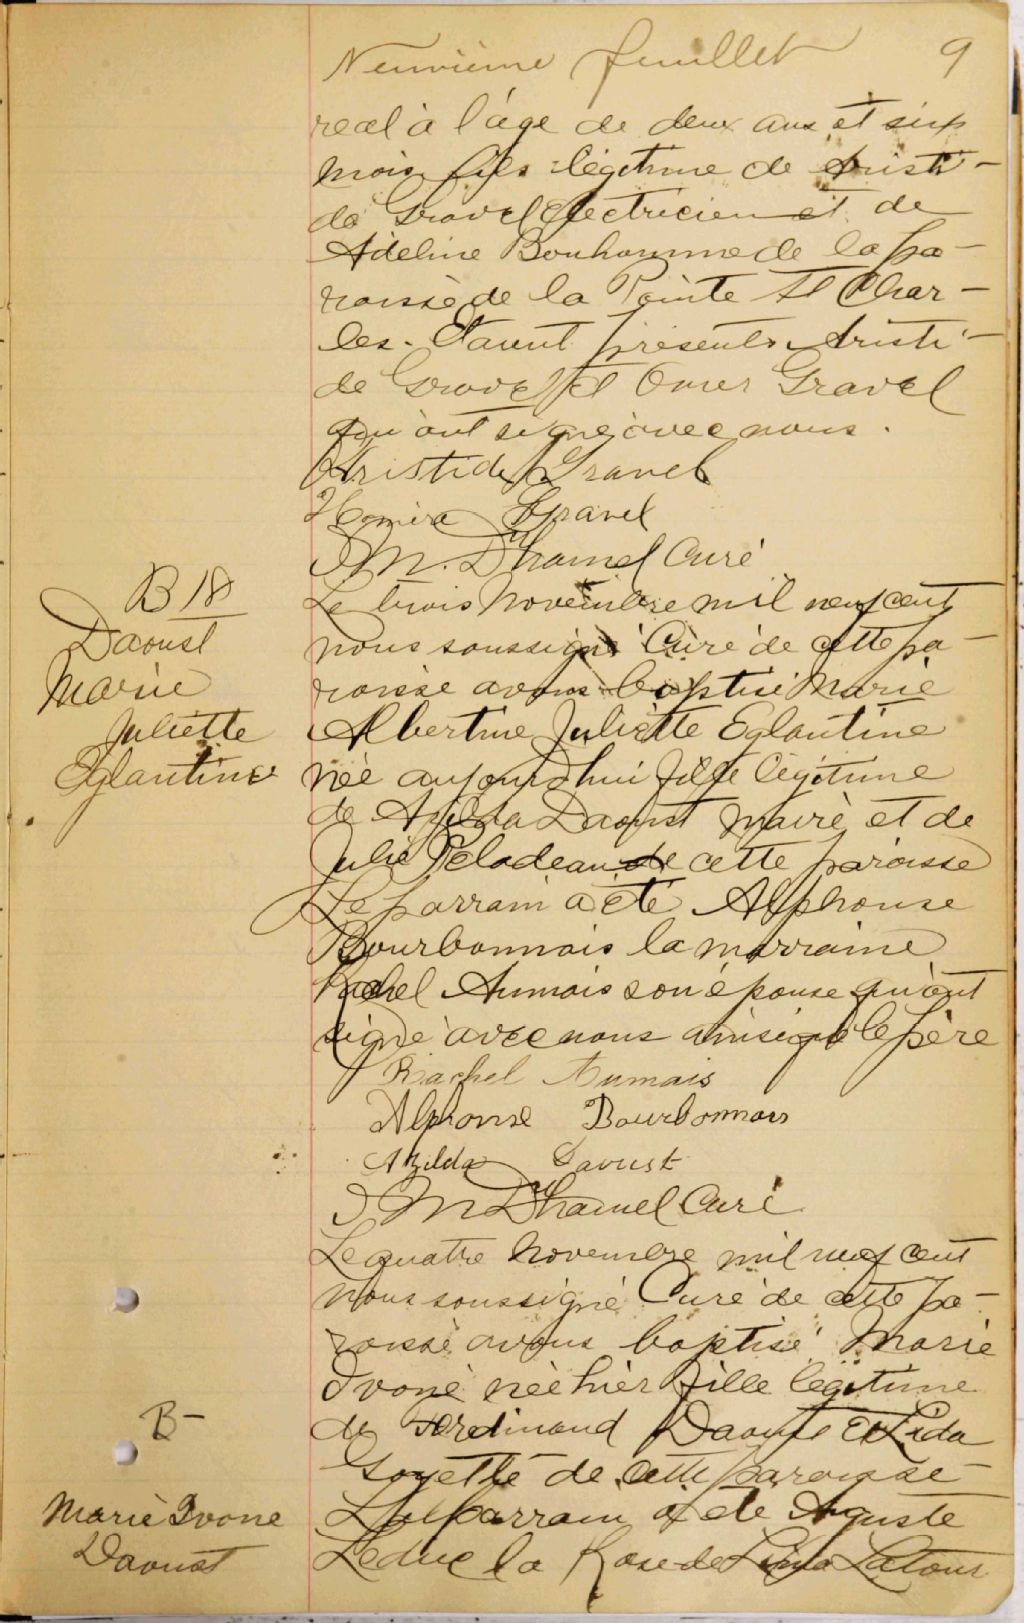 Neuvième feuillet 9
real à l'âge de deux ans et six
mois fils légitime de Aristi-
de Gravel électricien et de
Adeline Bonhomme de la pa-
roisse de la Pointe St Char-
les. Etaient présents Aristi-
de Gravel et Omer Gravel
qui ont signé avec nous.
Aristide Gravel
Gravel
J M. Duhamel Curé
B 18
Daoust
Marie
Juliette
Eglantine
Le trois Novembre mil neuf cent
nous soussigné Curé de cette pa-
roisse avons baptisé Marie
Albertine Juliette Eglantine
née aujourd'hui fille légitime
de Azilda Daoust maire et de
Julie Peladeau de cette paroisse
Le parrain a été Alphonse
Bourbonnais la marraine
Rachel Aumais son épouse qui ont
signé avec nous ainsi que le père
Rachel Aumais
Alphonse Bourbonnais
Azilda Daoust
J M Duhamel Curé
Le quatre Novembre mil neuf cent
nous soussigné Curé de cette pa-
roisse avons baptisé Marie
Ivone née hier fille légitime
de Ferdinand Daoust et Lida
Goyette de cette paroisse
B-
Marie Ivone
Daoust
Le parrain a été Auguste
Leduc la Rose de Lima Latour